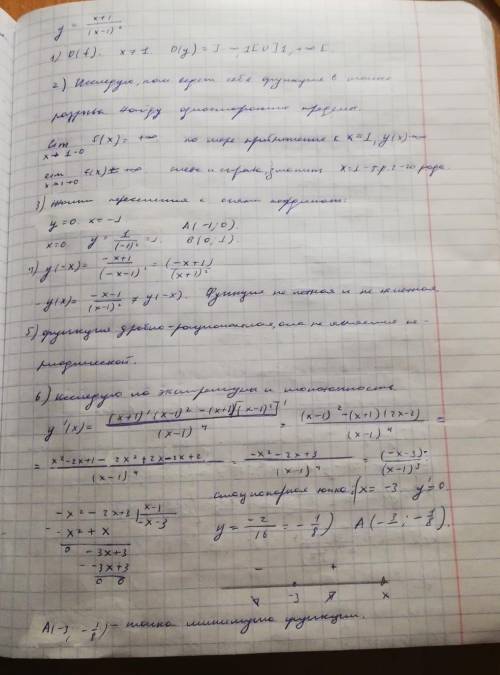 y = (x+1)/(x-1)²
1) D(f). x ≠ 1 D(y) = ]-∞, 1[ U ]1, +∞[
2) Исследую, как ведёт себя функция в точке
разрыва. Найду односторонние пределы.
lim x→1-0 f(x) = +∞ по мере приближения к x=1, y(x)→∞
lim x→1+0 f(x) = +∞ слева и справа, значит x=1 - т.р. 2-го рода
3) Точки пересечения с осями координат:
y=0. x=-1 A(-1; 0).
x=0 y = 1/(-1)² = 1. B(0, 1).
4) y(-x) = (-x+1)/(-x-1)² = (-x+1)/(x+1)²
-y(x) = (-x-1)/(x-1)² ≠ y(-x). Функция не четная и не нечетная
5) функция дробно-рациональная, она не является пе-
риодической.
6) Исследую на экстремумы и монотонность
y'(x) = ((x+1)'(x-1)² - (x+1)[(x-1)²]')/(x-1)⁴ = ((x-1)² - (x+1)(2x-2))/(x-1)⁴ =
= (x²-2x+1 - 2x²+2x-2x+2)/(x-1)⁴ = (-x²-2x+3)/(x-1)⁴ = (-x-3)/(x-1)³
стационарная точка: x = -3 y'=0
-x²-2x+3 | x-1
-x²+x | -x-3
0 -3x+3
-3x+3
0 0
y = -2/16 = -1/8) A(-3; -1/8).
- +
-3 x
A(-3, -1/8) - точка минимума функции.